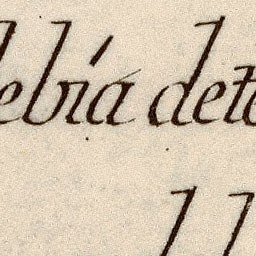 debía dete